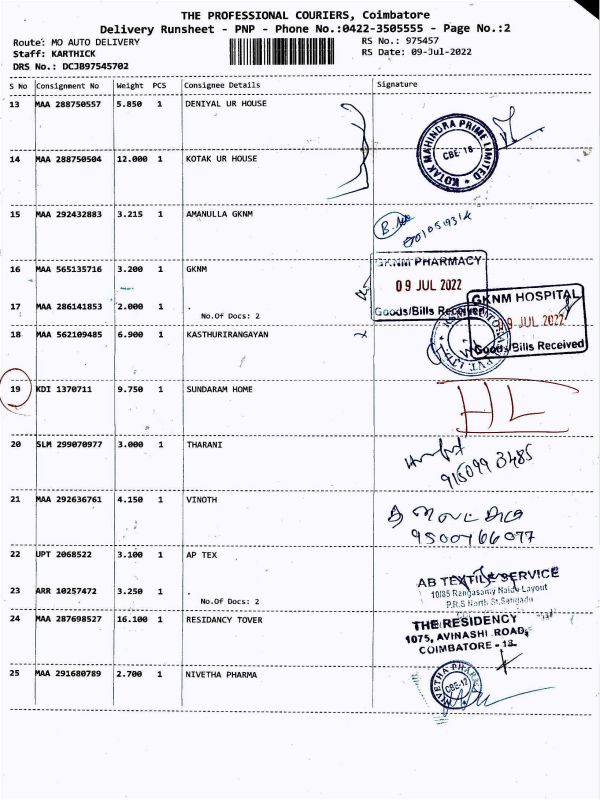 THE PROFESSIONAL COURIERS, Coimbatore
Delivery Runsheet - PNP - Phone No.:0422-3505555 - Page No.:2
Route: MO AUTO DELIVERY RS No.: 975457
Staff: KARTHICK RS Date: 09-Jul-2022
DRS No.: DCJB97545702
S No Consignment No Weight PCS Consignee Details Signature
13 MAA 288750557 5.850 1 DENIYAL UR HOUSE
KOTAK MAHINDRA PRIME LIMITED
CBE-18
14 MAA 288750504 12.000 1 KOTAK UR HOUSE
15 MAA 292432883 3.215 1 AMANULLA GKNM
16 MAA 565135716 3.200 1 GKNM
GKNM PHARMACY
09 JUL 2022
Goods/Bills Received
17 MAA 286141853 2.000 1 .
No.Of Docs: 2
GKNM HOSPITAL
09 JUL 2022
Goods/Bills Received
18 MAA 562109485 6.900 1 KASTHURIRANGAYAN
19 KDI 1370711 9.750 1 SUNDARAM HOME
HL
20 SLM 299070977 3.000 1 THARANI
915099 3485
21 MAA 292636761 4.150 1 VINOTH
9500466077
22 UPT 2068522 3.100 1 AP TEX
AB TEXTILE SERVICE
10/85 Rangasamy Naidu Layout
P.R.S North St. Sanganur
23 ARR 10257472 3.250 1 .
No.Of Docs: 2
24 MAA 287679527 16.100 1 RESIDANCY TOVER
THE RESIDENCY
1075, AVINASHI ROAD,
COIMBATORE - 18.
25 MAA 291680789 2.700 1 NIVETHA PHARMA
NIVETHA PHARMA
CBE-12